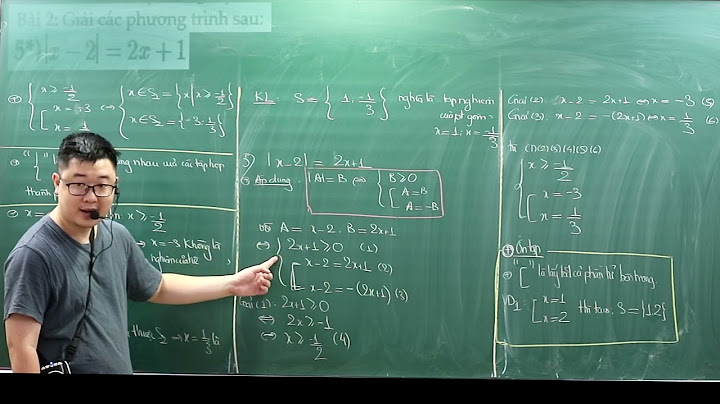 Bài 2: Giải các phương trình sau:
5*) |x − 2| = 2x + 1
x ≥ -1/2
x = -3
x = 1/3
⇔
x ∈ S₁ = {x | x ≥ -1/2}
x ∈ S₂ = {-3; 1/3}
x ≥ -1/2
⇒ x = -3 không là
nghiệm của hệ
⇒ x = 1/3 là
KL: S = {1; -1/3} nghĩa là tập nghiệm
của pt gồm:
x = 1; x = -1/3
5) |x-2| = 2x+1
Áp dụng: |A| = B ⇔ { B ≥ 0
[ A = B
A = -B
với A = x-2; B = 2x+1
⇔ { 2x+1 ≥ 0 (1)
[ x-2 = 2x+1 (2)
x-2 = -(2x+1) (3)
Giải (1): 2x+1 ≥ 0
⇔ 2x ≥ -1
⇔ x ≥ -1/2 (4)
Giải (2): x-2 = 2x+1 ⇔ x = -3 (5)
Giải (3): x-2 = -(2x+1) ⇔ x = 1/3 (6)
Từ (1)(2)(3)(4)(5)(6)
{ x ≥ -1/2
[ x = -3
x = 1/3
+ Ôn tập
"[" là lấy tất cả phần tử bên trong
VD1: [ x=1
x=2 thì ta có: S = {1;2}